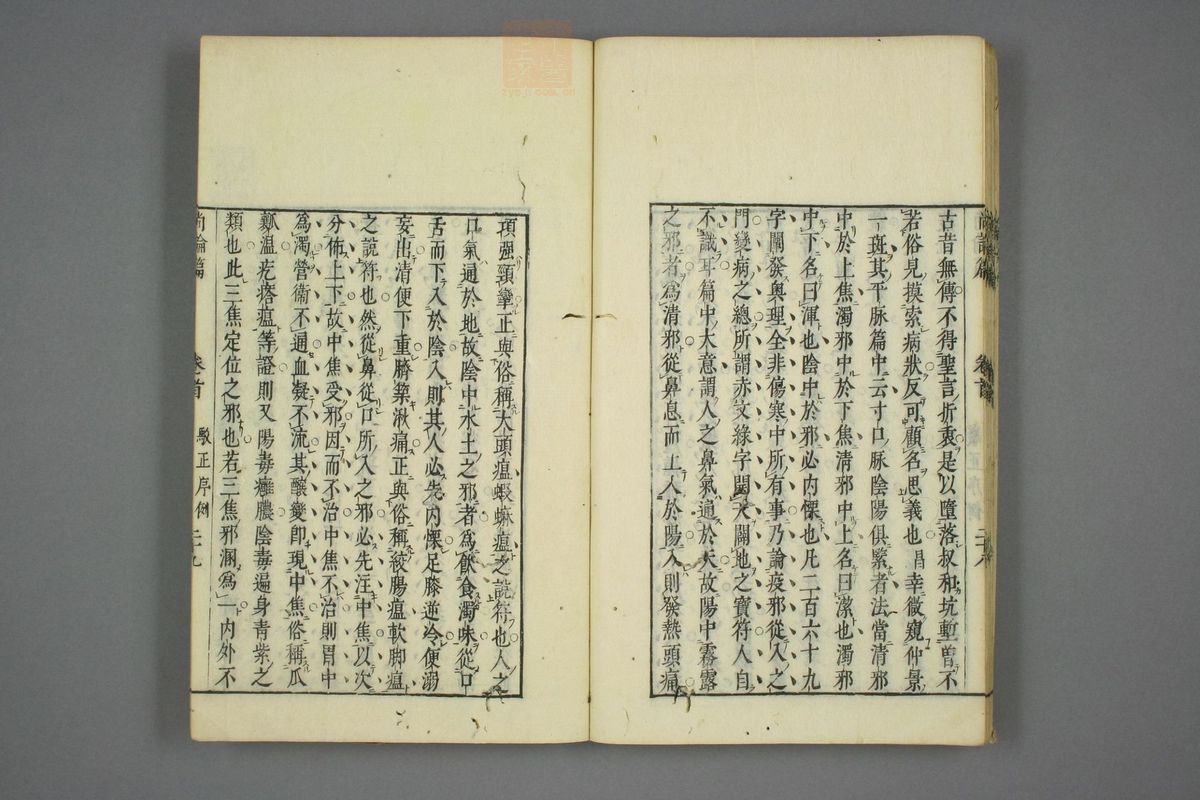 古昔無傳不得聖言折衷是以墮落叔和坑塹曾不
若俗見摸索病狀反可顧名思義也昌幸微窺仲景
一斑其平脉篇中云寸口脉陰陽俱緊者法當清邪
中於上焦濁邪中於下焦清邪中上名曰潔也濁邪
中下名曰渾也陰中於邪必内慄也凡二百六十九
字闡發奧理全非傷寒中所有事乃論疫邪從入之
門變病之總所謂赤文綠字開天闢地之寶符人自
不識耳篇中大意謂人之鼻氣通於天故陽中霧露
之邪者爲清邪從鼻息而上入於陽入則發熱頭痛
尚論篇
卷首
項强頸攣正與俗稱大頭瘟蝦蟆瘟之說符也人之
口氣通於地故陰中水土之邪者爲飲食濁味從口
舌而下入於陰入則其人必先内慄足膝逆冷便溺
妄出清便下重臍築湫痛正與俗稱絞腸瘟軟脚瘟
之說符也然從鼻從口所入之邪必先注中焦以次
分佈上下故中焦受邪因而不治中焦不治則胃中
爲濁營衛不通血凝不流其釀變即現中焦俗稱瓜
瓤瘟疙瘩瘟等證則又陽毒癰膿陰毒遍身青紫之
類也此三焦定位之邪也若三焦邪溷爲一内外不
尚論篇
卷首
駁正序例
二十九